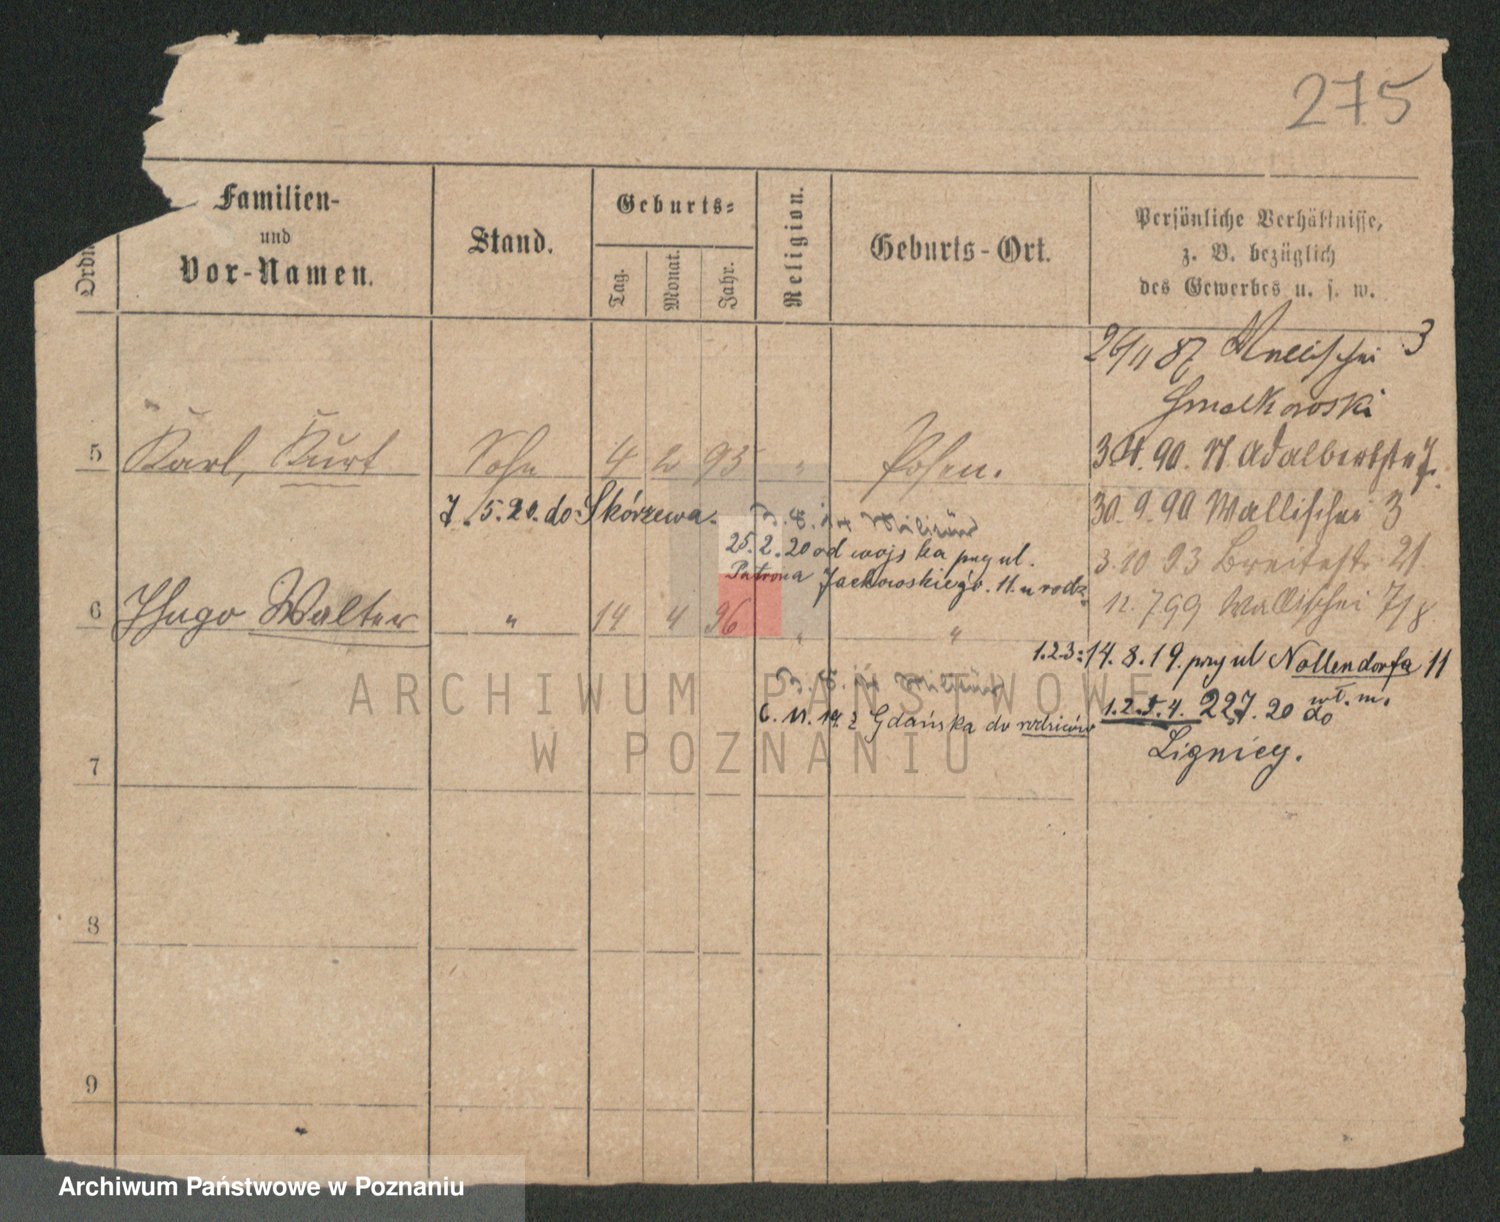 275
Ordn
Familien-
und
Vor-Namen.
Stand.
Geburts-
Tag.
Monat.
Jahr.
Religion.
Geburts-Ort.
Persönliche Verhältnisse,
z. B. bezüglich
des Gewerbes u. s. w.
26/11 87 Wallischei 3
5 Karl, Kurt Sohn 4 2 93 " Posen.
3.4.90. N. Adalbertstr
7.5.20. do Skórzewa.
30.9.90 Wallischei 3
25.2.20 od wojska przy ul.
Patrona Jackowskiego. 11. u rodz.
3.10 93 Breitestr. 21.
6 Hugo Walter " 14 4 96 " "
12.7 99 Wallischei 7/8
1.2.3: 14.8.19. przy ul Nollendorfa 11
wł. m.
6.11.19. z Gdańska do rodziców
1.2.3.4. 22.7.20 do
Lignicy.
7
8
9
ARCHIWUM PAŃSTWOWE
W POZNANIU
Archiwum Państwowe w Poznaniu